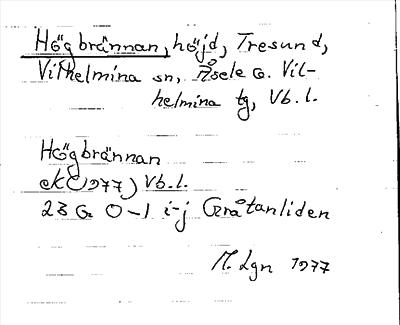 Högbrännan, höjd, Tresund,
Vilhelmina sn, Åsele G. Vil-
helmina tg, Vb. l.
Högbrännan
eK (1977) Vb. l.
23 G 0-1 i-j Gråtanliden
M. Lgn 1977